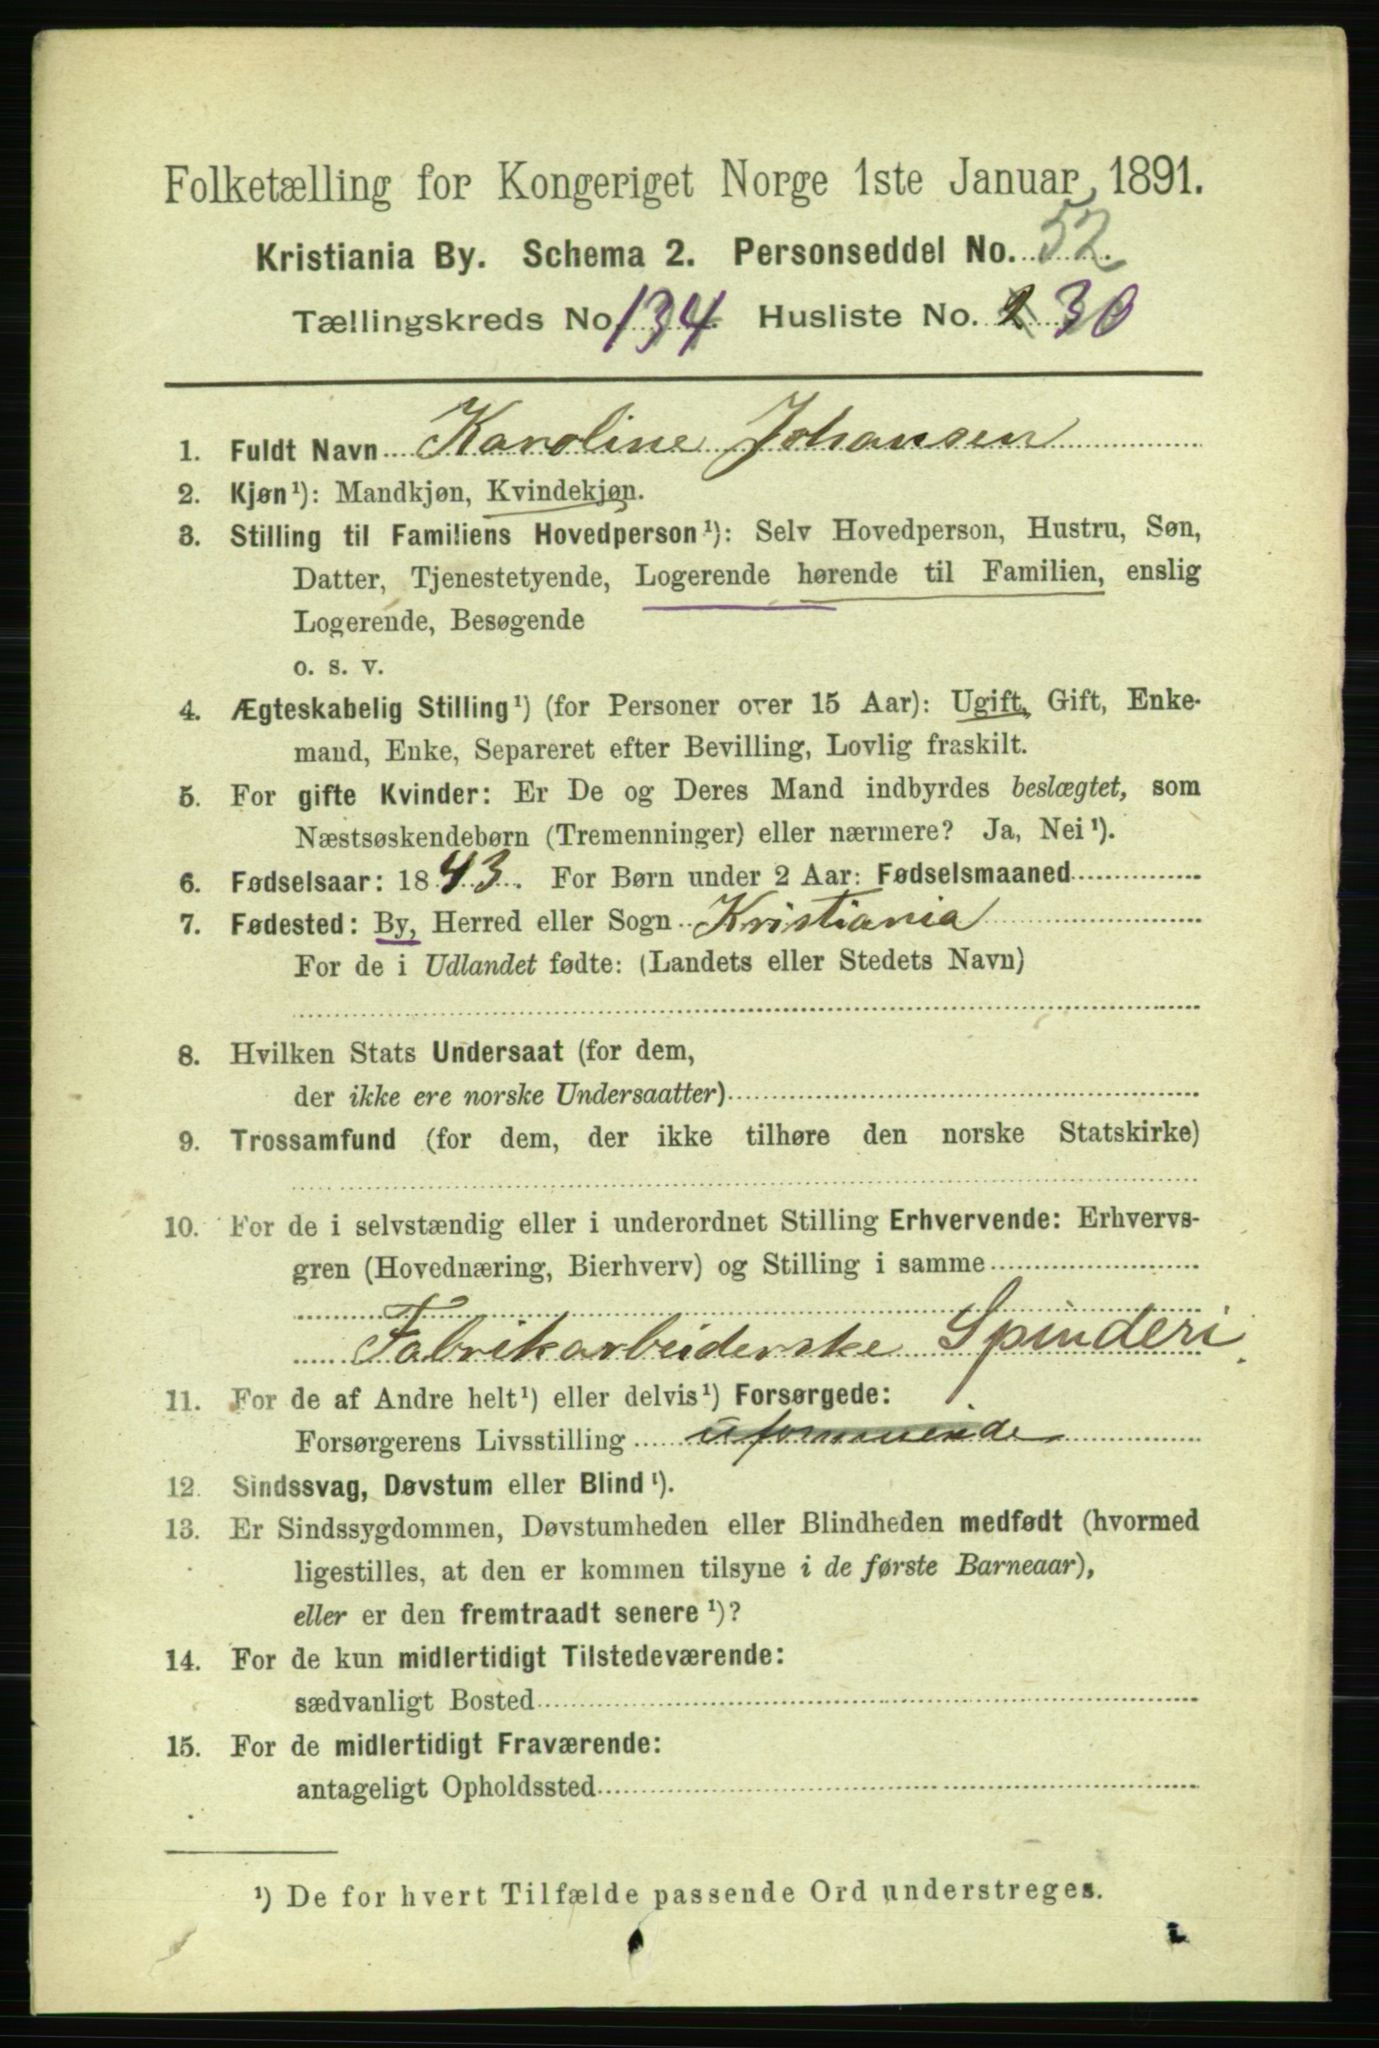 Folketælling for Kongeriget Norge 1ste Januar 1891.
Kristiania By. Schema 2. Personseddel No. 52.
Tællingskreds No. 134. Husliste No. 2 30
1. Fuldt Navn Karoline Johansen
2. Kjøn¹): Mandkjøn, Kvindekjøn.
3. Stilling til Familiens Hovedperson¹): Selv Hovedperson, Hustru, Søn,
Datter, Tjenestetyende, Logerende hørende til Familien, enslig
Logerende, Besøgende
o. s. v.
4. Ægteskabelig Stilling¹) (for Personer over 15 Aar): Ugift, Gift, Enke-
mand, Enke, Separeret efter Bevilling, Lovlig fraskilt.
5. For gifte Kvinder: Er De og Deres Mand indbyrdes beslægtet, som
Næstsøskendebørn (Tremenninger) eller nærmere? Ja, Nei¹).
6. Fødselsaar: 1843. For Børn under 2 Aar: Fødselsmaaned
7. Fødested: By, Herred eller Sogn Kristiania
For de i Udlandet fødte: (Landets eller Stedets Navn)
8. Hvilken Stats Undersaat (for dem,
der ikke ere norske Undersaatter)
9. Trossamfund (for dem, der ikke tilhøre den norske Statskirke)
10. For de i selvstændig eller i underordnet Stilling Erhvervende: Erhvervs-
gren (Hovednæring, Bierhverv) og Stilling i samme
Fabrikarbeiderske Spinderi.
11. For de af Andre helt¹) eller delvis¹) Forsørgede:
Forsørgerens Livsstilling
12. Sindssvag, Døvstum eller Blind¹).
13. Er Sindssygdommen, Døvstumheden eller Blindheden medfødt (hvormed
ligestilles, at den er kommen tilsyne i de første Barneaar),
eller er den fremtraadt senere¹)?
14. For de kun midlertidigt Tilstedeværende:
sædvanligt Bosted
15. For de midlertidigt Fraværende:
antageligt Opholdssted
¹) De for hvert Tilfælde passende Ord understreges.